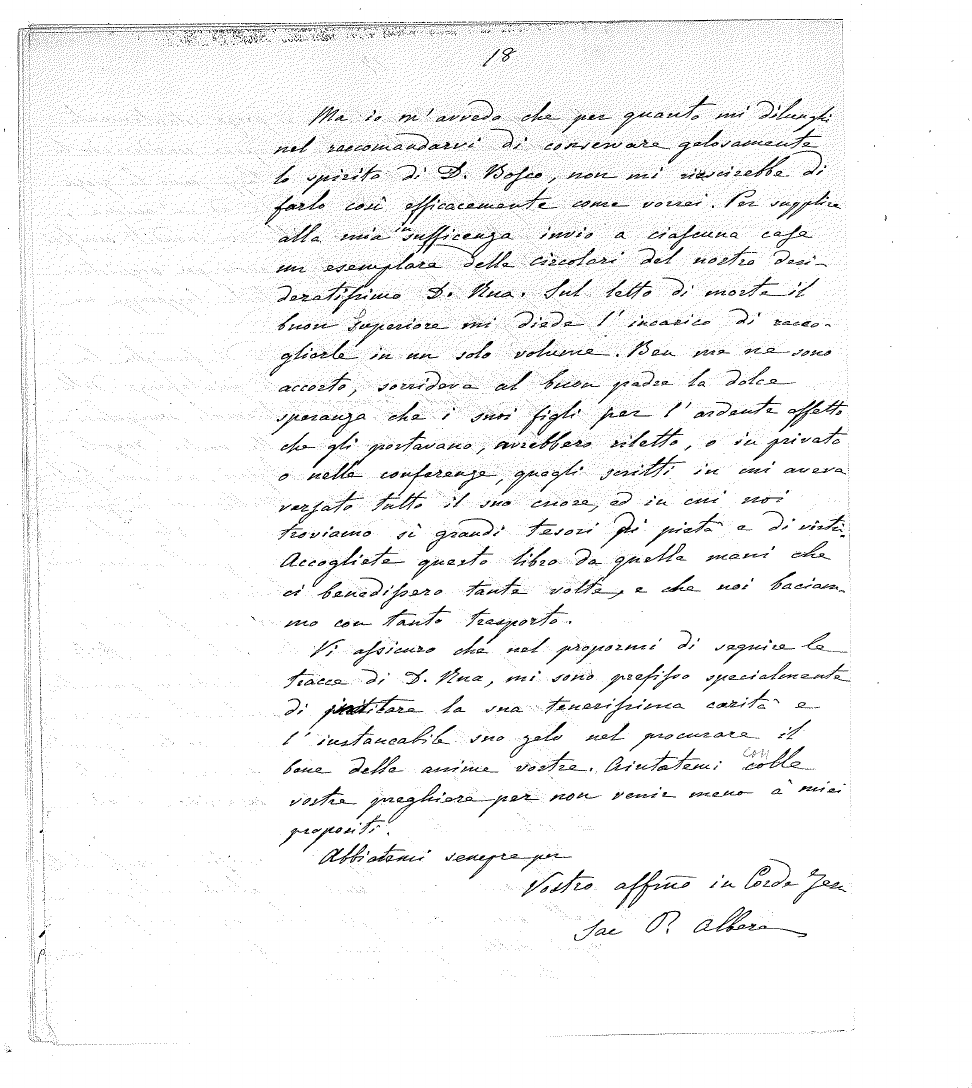 18
Ma io m'avvedo che per quanto mi dilunghi
nel raccomandarvi di conservare gelosamente
lo spirito di D. Bosco, non mi riescirebbe di
farlo così efficacemente come vorrei. Per supplire
alla mia insufficenza invio a ciascuna casa
un esemplare delle circolari del nostro desi-
deratissimo D. Rua. Sul letto di morte il
buon Superiore mi diede l'incarico di racco-
glierle in un solo volume. Ben me ne sono
accorto, sorrideva al buon padre la dolce
speranza che i suoi figli per l'ardente affetto
che gli portavano, avrebbero riletto, o in privato
o nelle conferenze, quegli scritti in cui aveva
versato tutto il suo cuore, ed in cui noi
troviamo sì grandi tesori di pietà e di virtù.
Accogliete questo libro da quelle mani che
ci benedissero tante volte, e che noi baciam-
mo con tanto trasporto.
Vi assicuro che nel propormi di seguire le
tracce di D. Rua, mi sono prefisso specialmente
di imitare la sua tenerissima carità e
l'instancabile suo zelo nel procurare il
bene delle anime vostre. Aiutatemi colle
vostre preghiere per non venir meno à miei
propositi.
Abbiatemi sempre per
Vostro affmo in Corde Jesu
Sac P. Albera